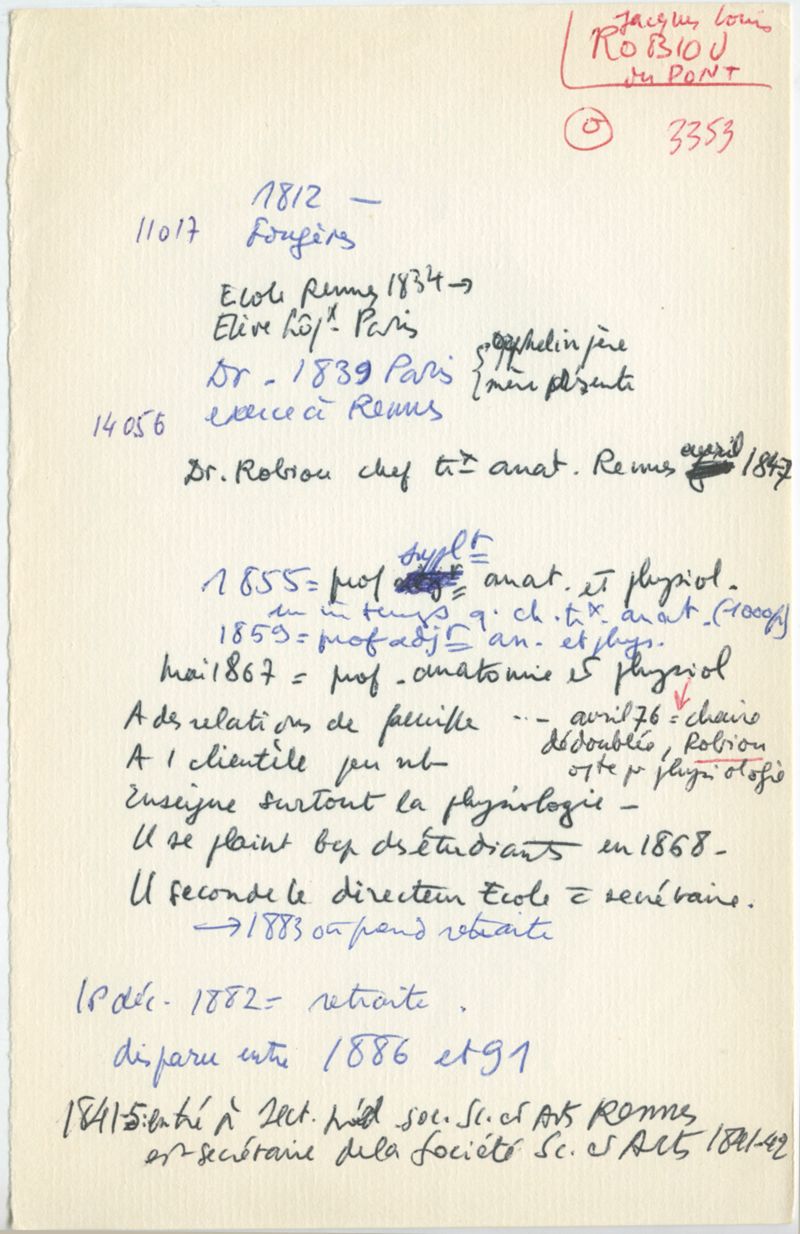 Jacques Louis
ROBIOU
du PONT
3353
1812 —
11017 Fougères
Ecole Rennes 1834 →
Elève hôpx Paris
Dr. 1839 Paris { orphelin père
{ mère présente
14056 exerce à Rennes
Dr. Robiou chef tx anat. Rennes avril 1847
supplt
1855 = prof anat. et physiol.
en m temps q. ch. tx. anat. (1000f)
1859 = prof adjt an. et phys.
Mai 1867 = prof. anatomie et physiol
A des relations de famille ... avril 76 = chaire
dédoublée, Robiou
opte pr physiologie
A 1 clientèle peu nb
Enseigne surtout la physiologie —
Il se plaint bcp des étudiants en 1868 —
Il seconde le directeur Ecole = secrétaire.
→ 1883 où prend retraite
déc. 1882 = retraite.
disparu entre 1886 et 91
1841-5: entré à Sect. Méd soc. Sc. et Arts Rennes
est secrétaire de la Société Sc. et Arts 1841-42